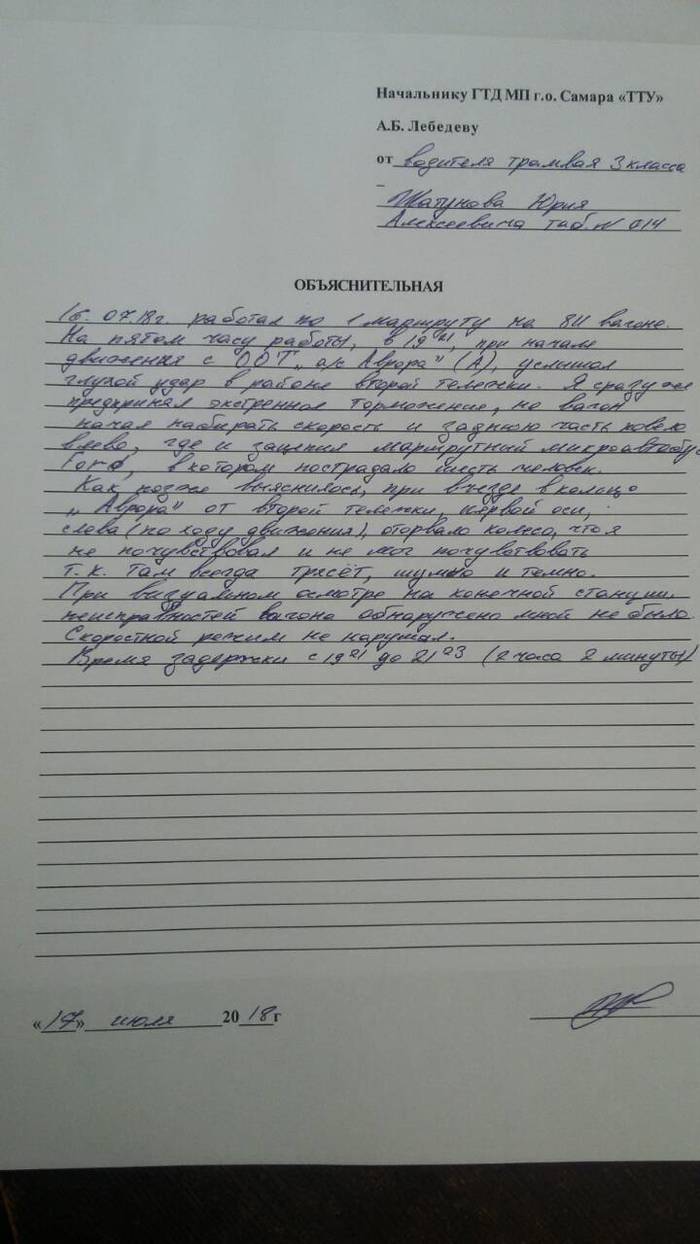 Начальнику ГТД МП г.о. Самара «ТТУ»
А.Б. Лебедеву
от водителя трамвая 3 класса
Шатунова Юрия
Алексеевича таб. № 614
ОБЪЯСНИТЕЛЬНАЯ
16.07.18г. работал по 1 маршруту на 8 11 вагоне.
На пятом часу работы, в 19 21, при начале
движения с ООТ „а/с Аврора" (А), услышал
глухой удар в районе второй тележки. Я сразу же
предпринял экстренное торможение, но вагон
начал набирать скорость и заднюю часть повело
влево, где и зацепил маршрутный микроавтобус
Форд, в котором пострадало шесть человек.
Как позже выяснилось, при въезде в кольцо
„Аврора" от второй тележки, первой оси,
слева (по ходу движения), оторвало колесо, что я
не почувствовал и не мог почувствовать
т.к. там всегда трясёт, шумно и темно.
При визуальном осмотре на конечной станции,
неисправностей вагона обнаружено мной не было.
Скоростной режим не нарушал.
Время задержки с 19 21 до 21 23 (2 часа 2 минуты)
«17» июля 2018г